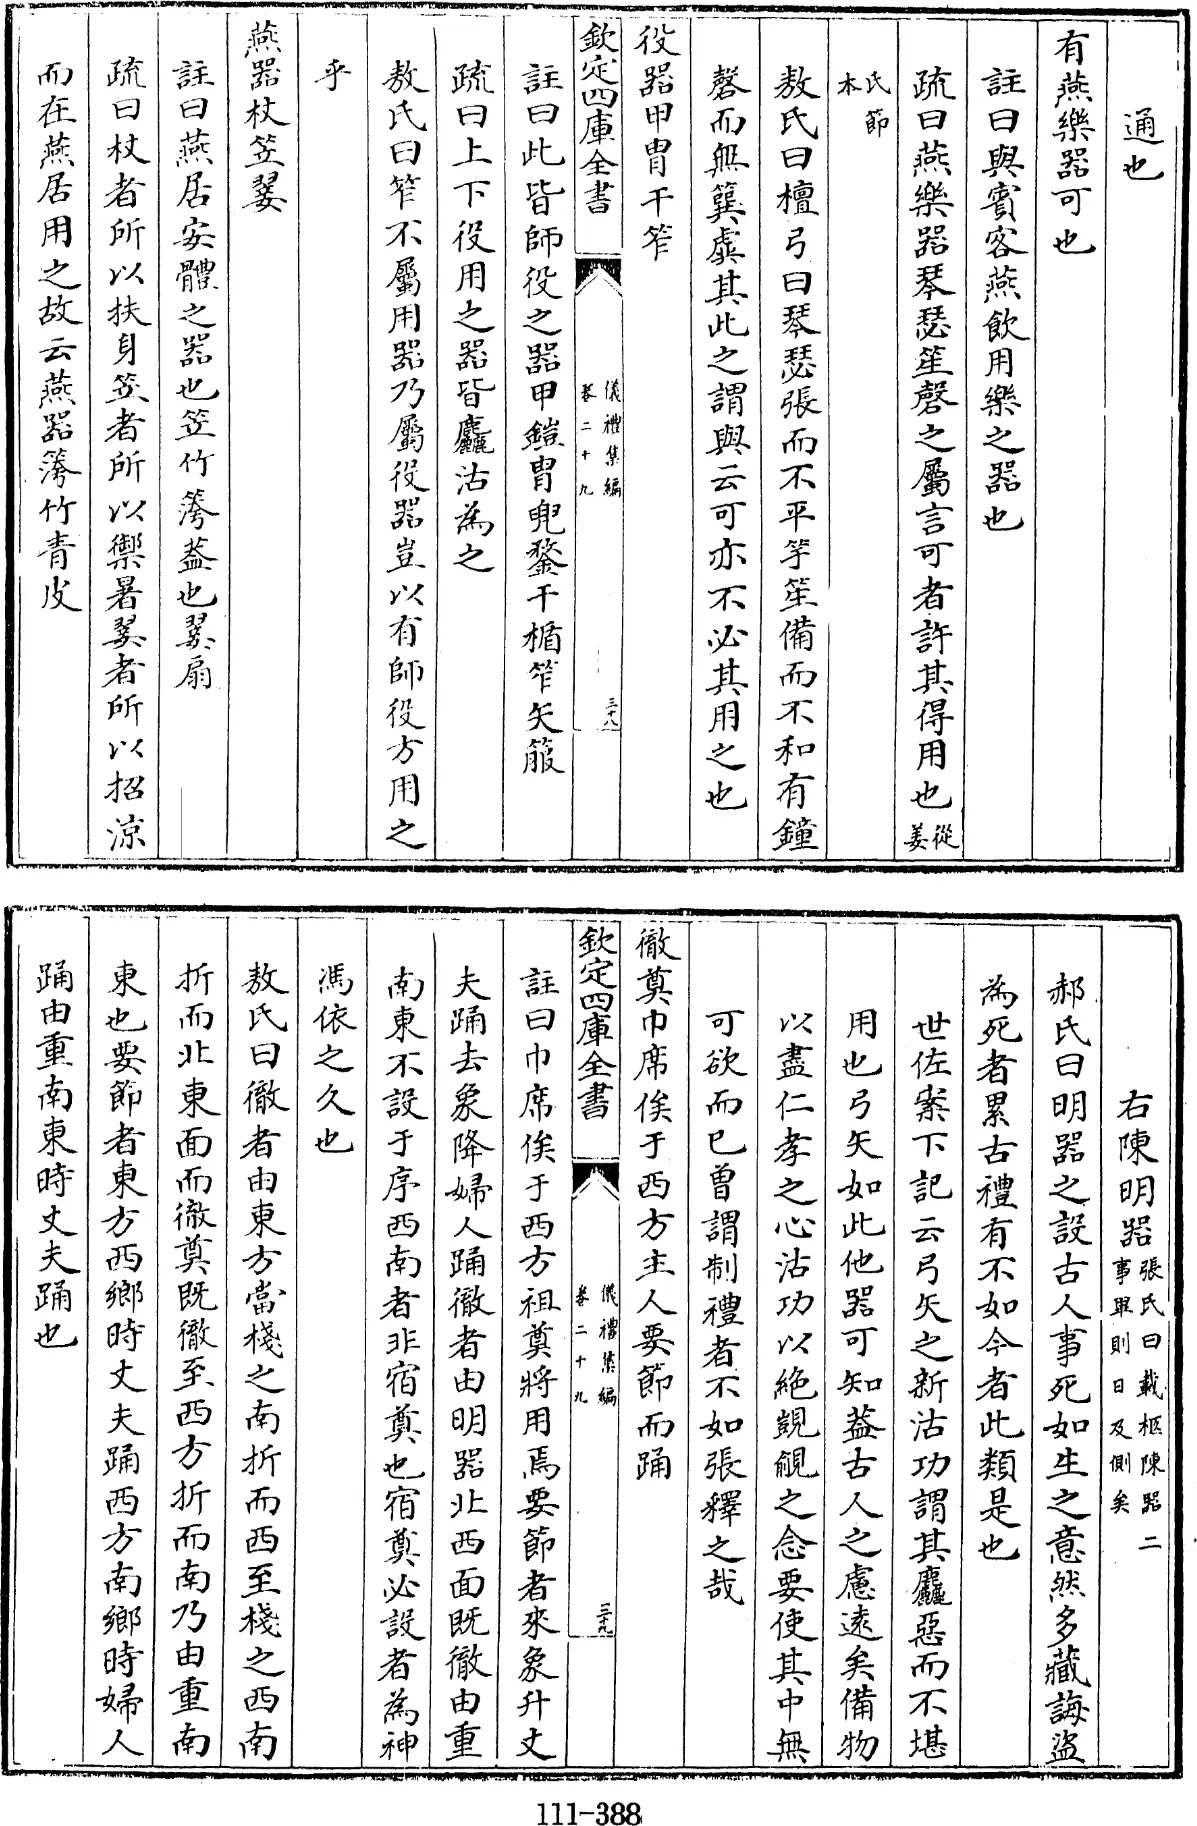 通也
有燕樂器可也
註曰與賓客燕飲用樂之器也
疏曰燕樂器琴瑟笙磬之屬言可者許其得用也從姜
氏節本
敖氏曰檀弓曰琴瑟張而不平竽笙備而不和有鐘
磬而無簨虡其此之謂與云可亦不必其用之也
役器甲冑干笮
欽定四庫全書
儀禮集編
卷二十九
三十八
註曰此皆師役之器甲鎧冑兜鍪干楯笮矢箙
疏曰上下役用之器皆麤沽為之
敖氏曰笮不屬用器乃屬役器豈以有師役方用之
乎
燕器杖笠翣
註曰燕居安體之器也笠竹䈏蓋也翣扇
疏曰杖者所以扶身笠者所以禦暑翣者所以招涼
而在燕居用之故云燕器䈏竹青皮
右陳明器張氏曰載柩陳器二
事畢則日及側矣
郝氏曰明器之設古人事死如生之意然多藏誨盜
為死者累古禮有不如今者此類是也
世佐案下記云弓矢之新沽功謂其麤惡而不堪
用也弓矢如此他器可知蓋古人之慮遠矣備物
以盡仁孝之心沽功以絶覬覦之念要使其中無
可欲而已曾謂制禮者不如張釋之哉
徹奠巾席俟于西方主人要節而踊
欽定四庫全書
儀禮集編
卷二十九
三十九
註曰巾席俟于西方祖奠將用焉要節者來象升丈
夫踊去象降婦人踊徹者由明器北西面既徹由重
南東不設于序西南者非宿奠也宿奠必設者為神
馮依之久也
敖氏曰徹者由東方當棧之南折而西至棧之西南
折而北東面而徹奠既徹至西方折而南乃由重南
東也要節者東方西鄉時丈夫踊西方南鄉時婦人
踊由重南東時丈夫踊也
111-388